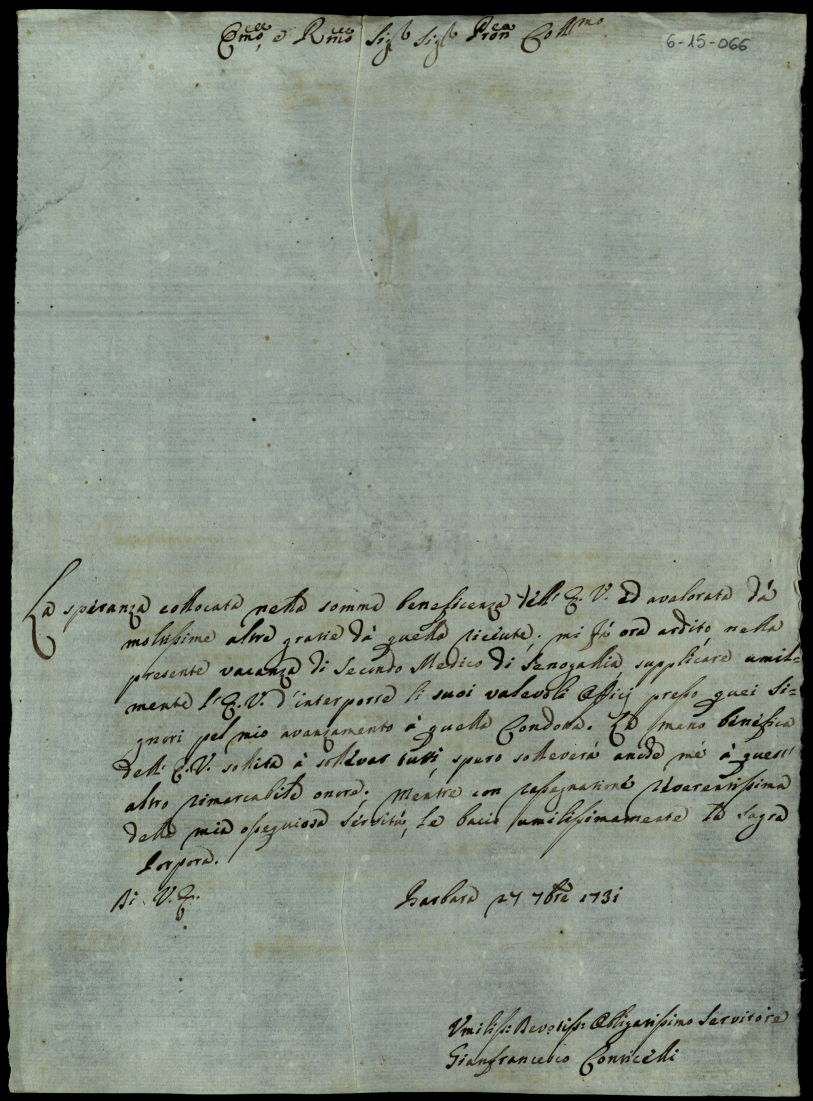 Em̃o, e Rm̃o Sig.r Sig.r Pron Coll.mo
6-15-066
La speranza collocata nella somma beneficenza dell' E. V. ed avalorata dà
moltissime altre gratie dà quella riceute, mi fà ora ardito nella
presente vacanza di Secondo Medico di Senogallia supplicare umil=
mente l'E. V. d'interporre li suoi valevoli Officj presso quei Si=
gnori pel mio avanzamento à quella Condotta. La mano benefica
dell' E. V. solita à sollevar tutti, spero solleverà anche mè à quest'
altro rimarcabile onore. Mentre con rassegnatione riverentissima
della mia ossequiosa servitù, le bacio umilissimamente la Sagra
Porpora.
Di V. E.
Barbara 27 7bre 1731
Umiliss: Devotiss: Obligatissimo Servitore
Gianfrancesco